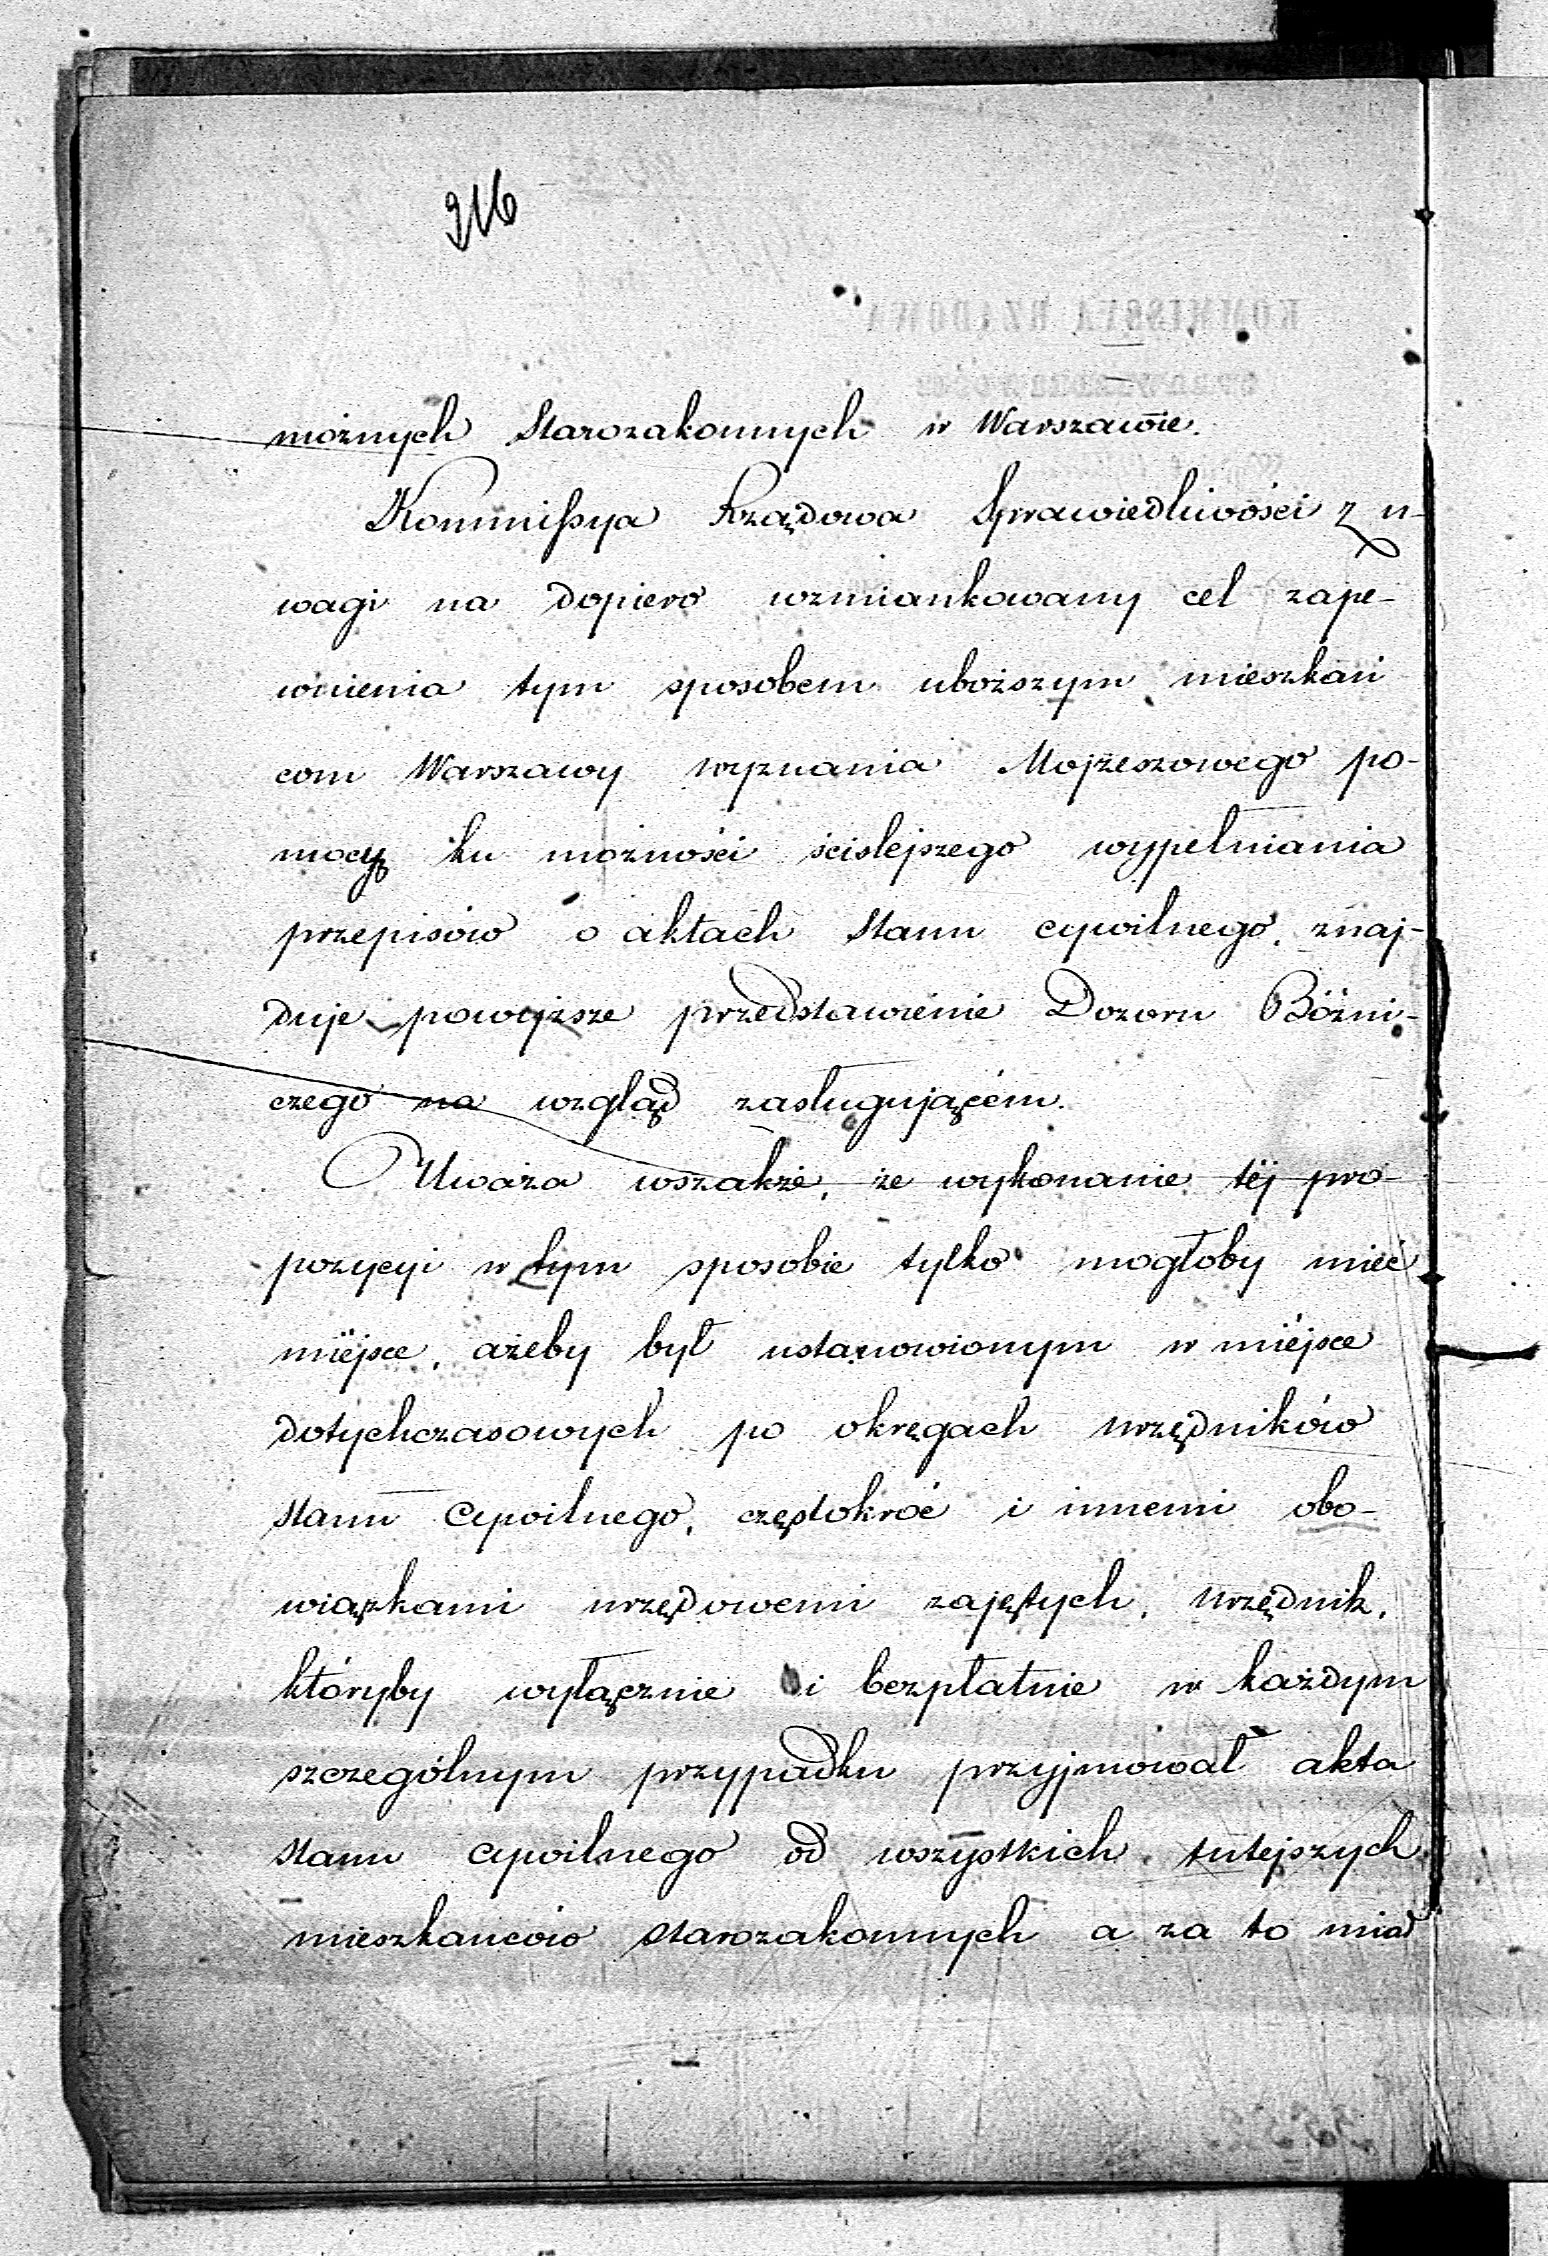 316
możnych Starozakonnych w Warszawie.
Kommißya Rządowa Sprawiedliwości z u-
wagi na dopiero wzmiankowany cel zape-
wnienia tym sposobem uboższym mieszkań
com Warszawy wyznania Mojżeszowego po-
mocy ku możności ściślejszego wypełniania
przepisów o aktach Stanu cywilnego, znaj-
duje powyższe przedstawienie Dozoru Bóżni-
czego na wzgląd zasługującém.
Uważa wszakże, że wykonanie téj pro-
pozycyi w tym sposobie tylko mogłoby mieć
miéjsce, ażeby był ustanowionym w miéjsce
dotychczasowych po okręgach urzędników
stanu Cywilnego, częstokroć i innemi obo-
wiązkami urzędowemi zajętych, urzędnik,
któryby wyłącznie i bezpłatnie w każdym
szczególnym przypadku przyjmował akta
stanu cywilnego od wszystkich tutejszych
mieszkańców starozakonnych a za to miał
KOMMISSYA RZĄDOWA